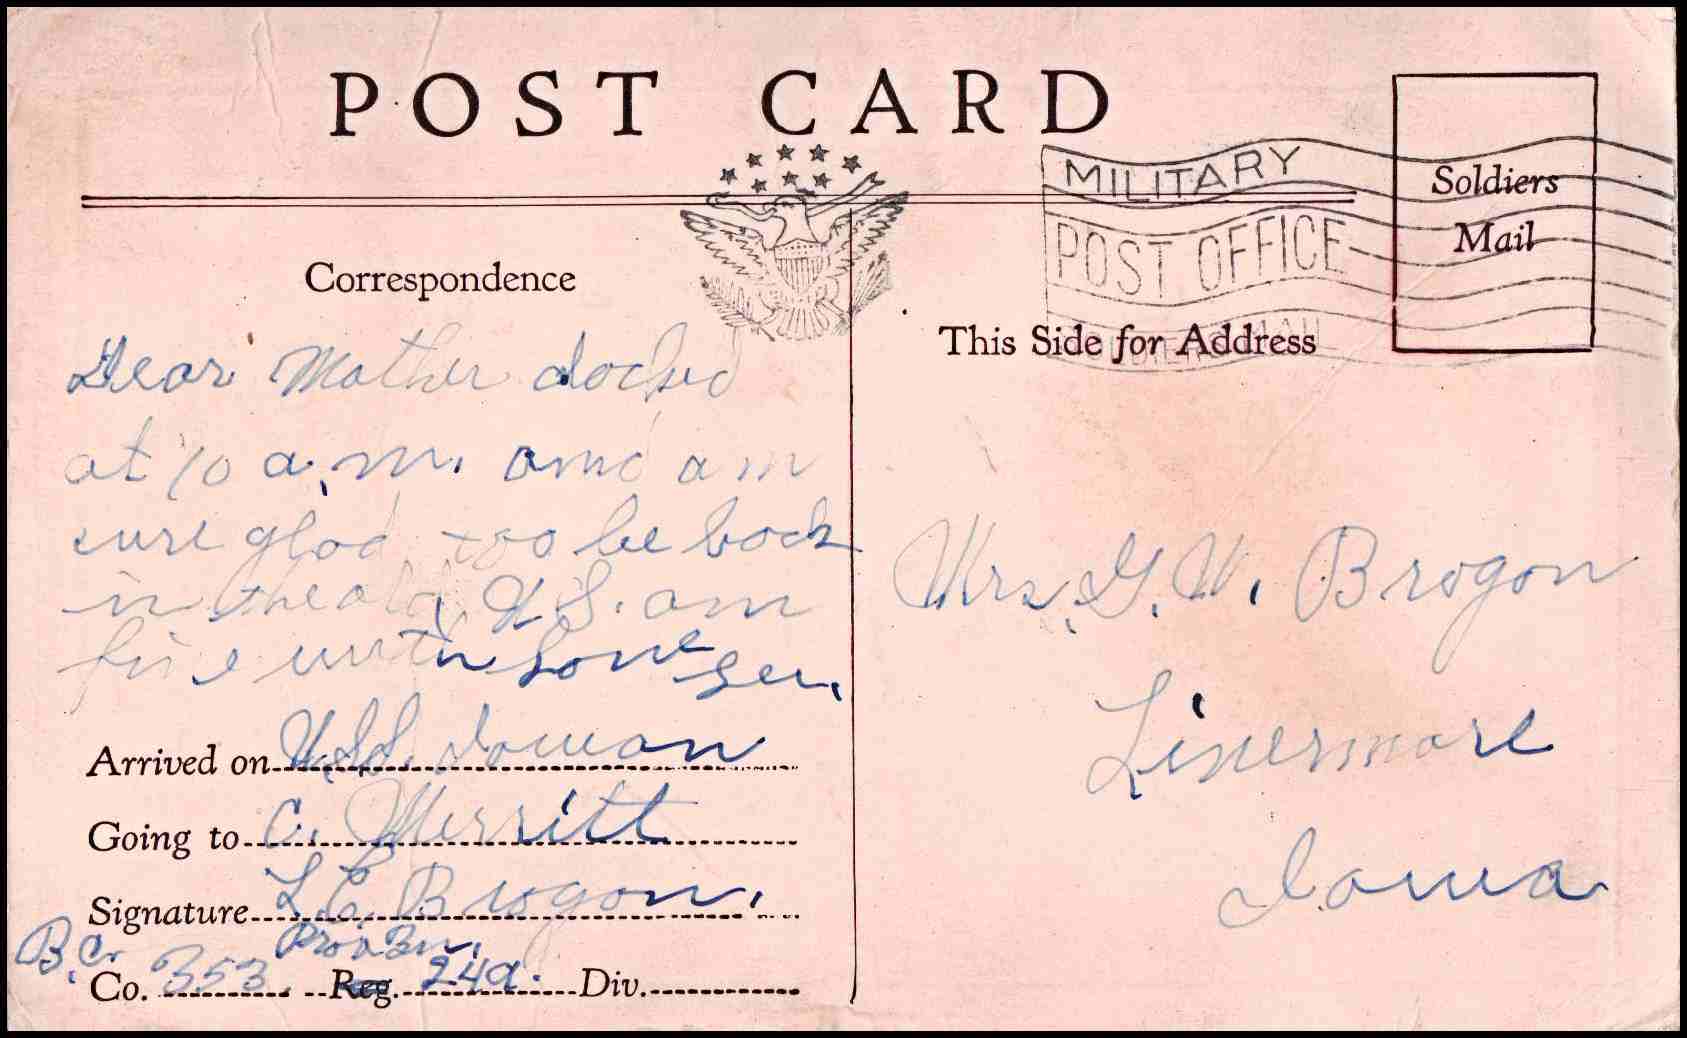 POST CARD
MILITARY
POST OFFICE
Soldiers
Mail
Correspondence
This Side for Address
Dear Mother docked
at 10 a.m. and am
sure glad too be back
in the old U.S. am
fine with some
Arrived on U.S.S. Iowan
Going to C. Merritt
Signature L.C. Brogan.
B.C. Prov Bn.
Co. 353. Reg. 249. Div.
Mrs. G. W. Brogan
Livermore
Iowa